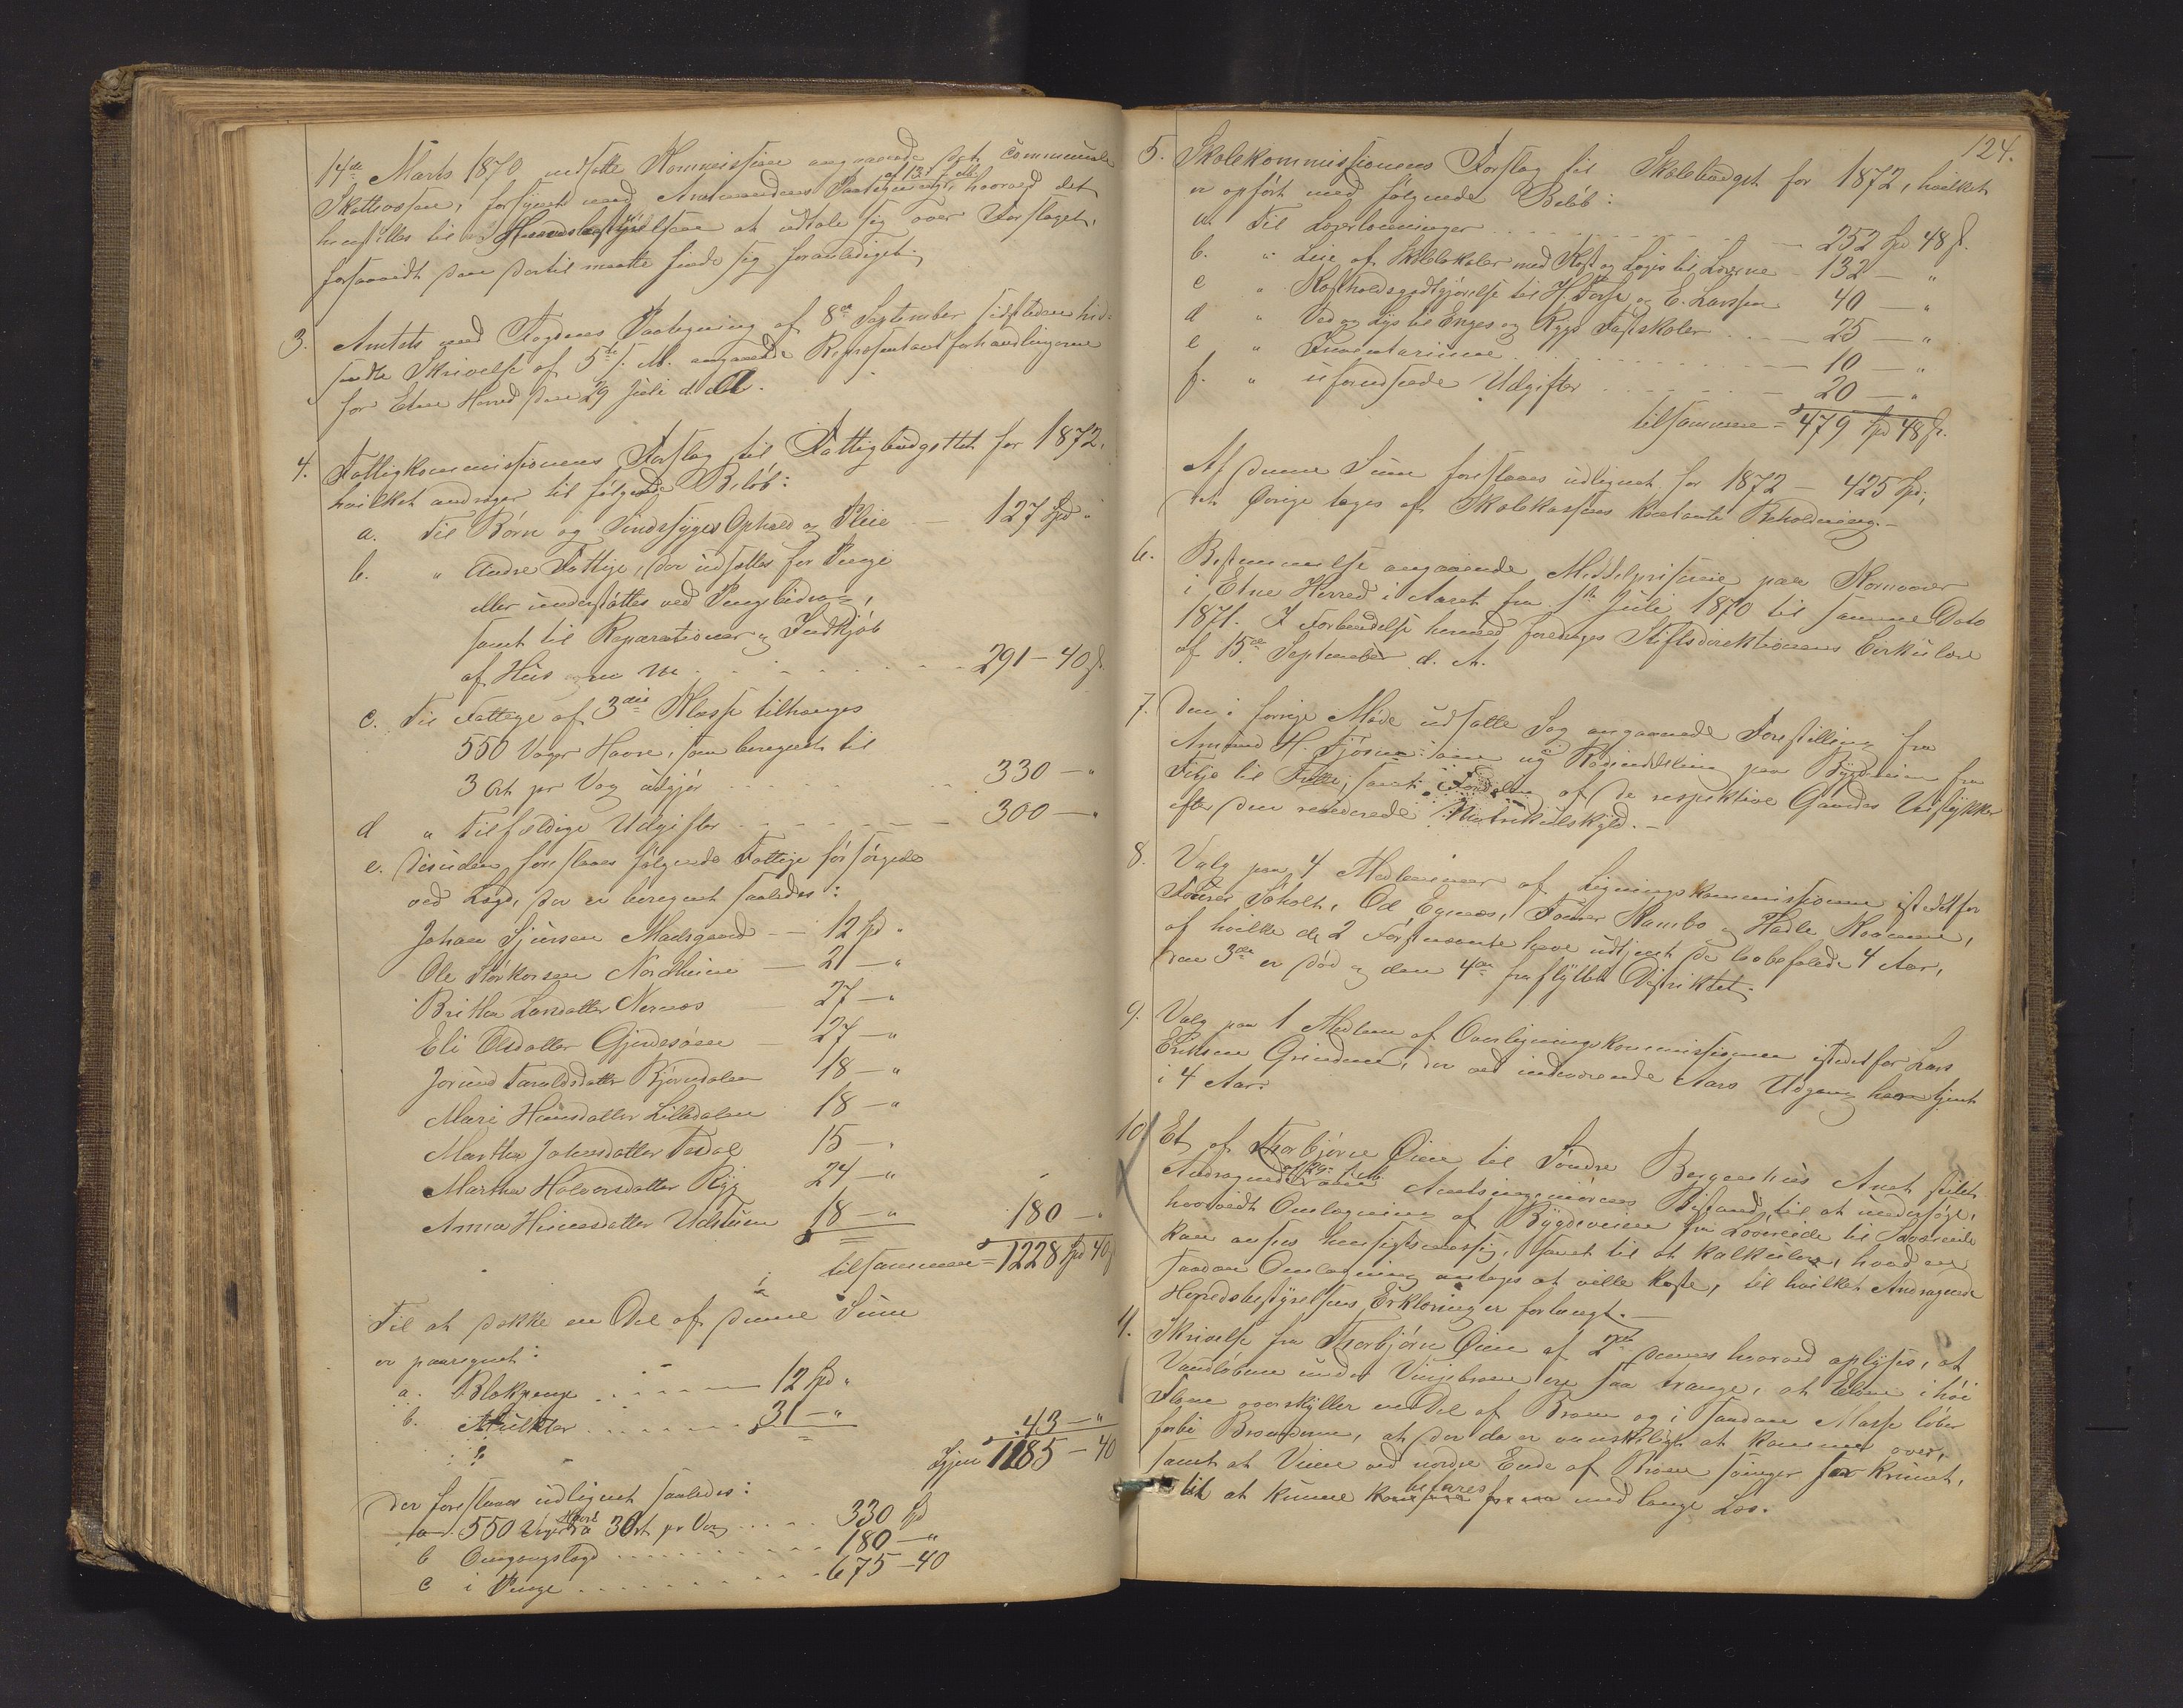 14de Marts 1870 nedsatte Kommission angaaende det communale
Skattevæsen, forsynet med Amtmandens Paategning af 13 f. M., hvorved det
henstilles til Herredsbestyrelsen at udtale sig over Forslaget,
forsaavidt den dertil maatte finde sig foranlediget.
3. Amtets med Fogdens Paategning af 8de September sidstleden hid-
sendte Skrivelse af 5te s. M. angaaende Repræsentantforhandlingerne
for Etne Herred den 29 Juli d. A.
4. Fattigkommissionens Forslag til Fattigbudgettet for 1872,
hvilket andrager til følgende Beløb:
a. Til Børn og Sindssyges Ophold og Pleie — 127 Spd "
b. " Andre Fattige, der udsættes for Penge
eller understøttes ved Pengebidrag,
samt til Reparationer og Indkjøb
af Huus m. m. 291 — 40 s.
c. Til Fattige af 3die Klasse tiltrænges
550 Voger Havre, som beregnet til
3 Ort pr Vog udgjør 330 — "
d " Tilfældige Udgifter 300 — "
e. Desuden foreslaaes følgende Fattige forsørgede
ved Lægd, der er beregnet saaledes:
Johan Sjursen Madsgaard — 12 Spd "
Ole Størkorsen Nordheim — 21 — "
Britha Larsdatter Nernæs 27 — "
Eli Olsdatter Gjerdesøen — 27 — "
Jorund Taraldsdatter Bjørndalen 18 — "
Mari Hansdatter Lilledalen 18 — "
Martha Johnsdatter Tesdal 15 — "
Martha Halvorsdatter Ryg 24 — "
Anna Hinesdatter Udstuen 18 — " 180 — "
tilsammen = 1228 Spd 40 s
Til at dække en Del af denne Sum
er paaregnet:
a. Blokpenge 12 Spd "
b. Mulkter 31 — " 43 — "
Igjen 1185 — 40
der foreslaaes udlignet saaledes:
a. 550 Voger Havre a 3 Ort pr Vog 330 Spd
b Omgangslægd 180 — "
c i Penge 675 — 40
124.
5. Skolekommissionens Forslag til Skolebudget for 1872, hvilket
er opført med følgende Beløb:
a. Til Lærerlønninger 252 Spd 48 s.
b. " Leie af Skolelokaler med Kost og Logis til Lærerne — 132 — "
c " Kostholdsgodtgjørelse til H. Torse og E. Larssen 40 — "
d " Ved og Lys til Enges og Rygs Fastskoler 25 — "
e " Inventarium 10 — "
f. " uforudseede Udgifter 20 — "
tilsammen = 479 Spd 48 s.
Af denne Sum foreslaaes udlignet for 1872 — 425 Spd,
det øvrige tages af Skolekassens kontante Beholdning. —
6. Bestemmelse angaaende Middelpriserne paa Kornvarer
i Etne Herred i Aaret fra 1ste Juli 1870 til samme Dato
1871. I Forbindelse hermed foredrages Stiftsdirektionens Cirkulære
af 15de September d. A.
7. Den i forrige Møde udsatte Sag angaaende Forestilling fra
Amund H. Fjøsne om ny Rodeinddeling paa Bygdeveien fra
Silje til samt Fordeling af de respektive Gaardes Veistykker
efter den reviderede Matrikulskyld. —
8. Valg paa 4 Medlemmer af Ligningskommissionen istedetfor
Tørres Søholt, Od Egenæs, Tormer Rambo og Hadle Kvamme,
af hvilke de 2 Førstnævnte have udtjent de lovbefalede 4 Aar,
den 3die er død og den 4de fraflyttet Distriktet.
9. Valg paa 1 Medlem af Overligningskommissionen istedetfor Lars
Eriksen Grinden, der ved indeværende Aars Udgang have tjent
i 4 Aar.
10. Et af Thorbjørn Øien til Søndre Bergenhus Amt stilet
Andragende af 29de f. M. om Amtsingeniørens Bistand til at undersøge,
hvorvidt Omlægning af Bygdeveien fra Løvereide til Sævereide
kan ansees hensigtsmæssig, samt til at kalkulere, hvad en
saadan Omlægning antages at ville koste, til hvilket Andragende
Herredsbestyrelsens Erklæring er forlangt. —
11. Skrivelse fra Thorbjørn Øien af 2den dennes hvorved oplyses, at
Vandløbene under Vinjebroen ere saa trange, at Elven i høi
Flom overskyller en Del af Broen og i saadan Masse løber
forbi Broenderne, at der da er vanskeligt at komme over,
samt at Veien ved nordre Ende af Broen svinger for krumt,
til at kunne befares med lange Læs.